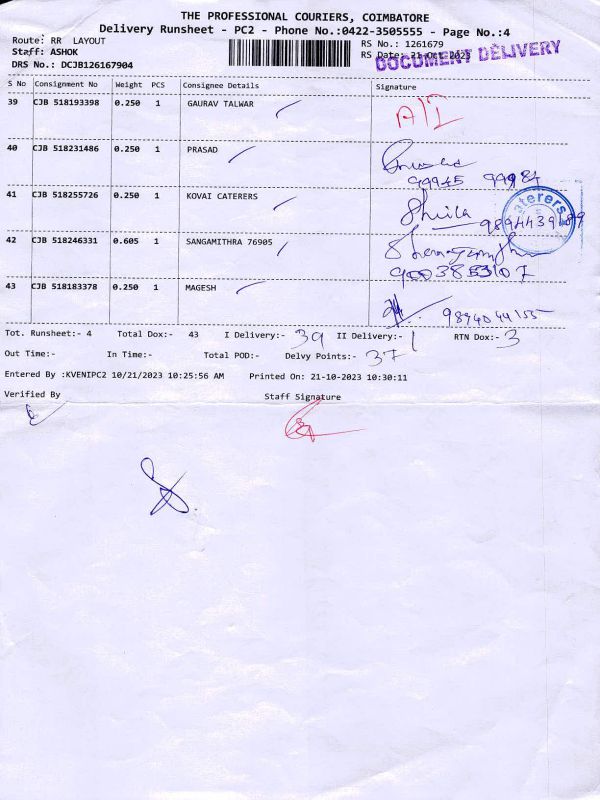 THE PROFESSIONAL COURIERS, COIMBATORE
Delivery Runsheet - PC2 - Phone No.:0422-3505555 - Page No.:4
Route: RR LAYOUT
RS No.: 1261679
Staff: ASHOK
RS Date: 21-Oct-2023
DOCUMENT DELIVERY
DRS No.: DCJB126167904
S No Consignment No Weight PCS Consignee Details Signature
39 CJB 518193398 0.250 1 GAURAV TALWAR
40 CJB 518231486 0.250 1 PRASAD
99945 99984
41 CJB 518255726 0.250 1 KOVAI CATERERS Shuila
aterers
42 CJB 518246331 0.605 1 SANGAMITHRA 76905
43 CJB 518183378 0.250 1 MAGESH
Tot. Runsheet:- 4 Total Dox:- 43 I Delivery:- 39 II Delivery:- 1 RTN Dox:- 3
Out Time:- In Time:- Total POD:- Delvy Points:- 37
Entered By :KVENIPC2 10/21/2023 10:25:56 AM Printed On: 21-10-2023 10:30:11
Verified By Staff Signature